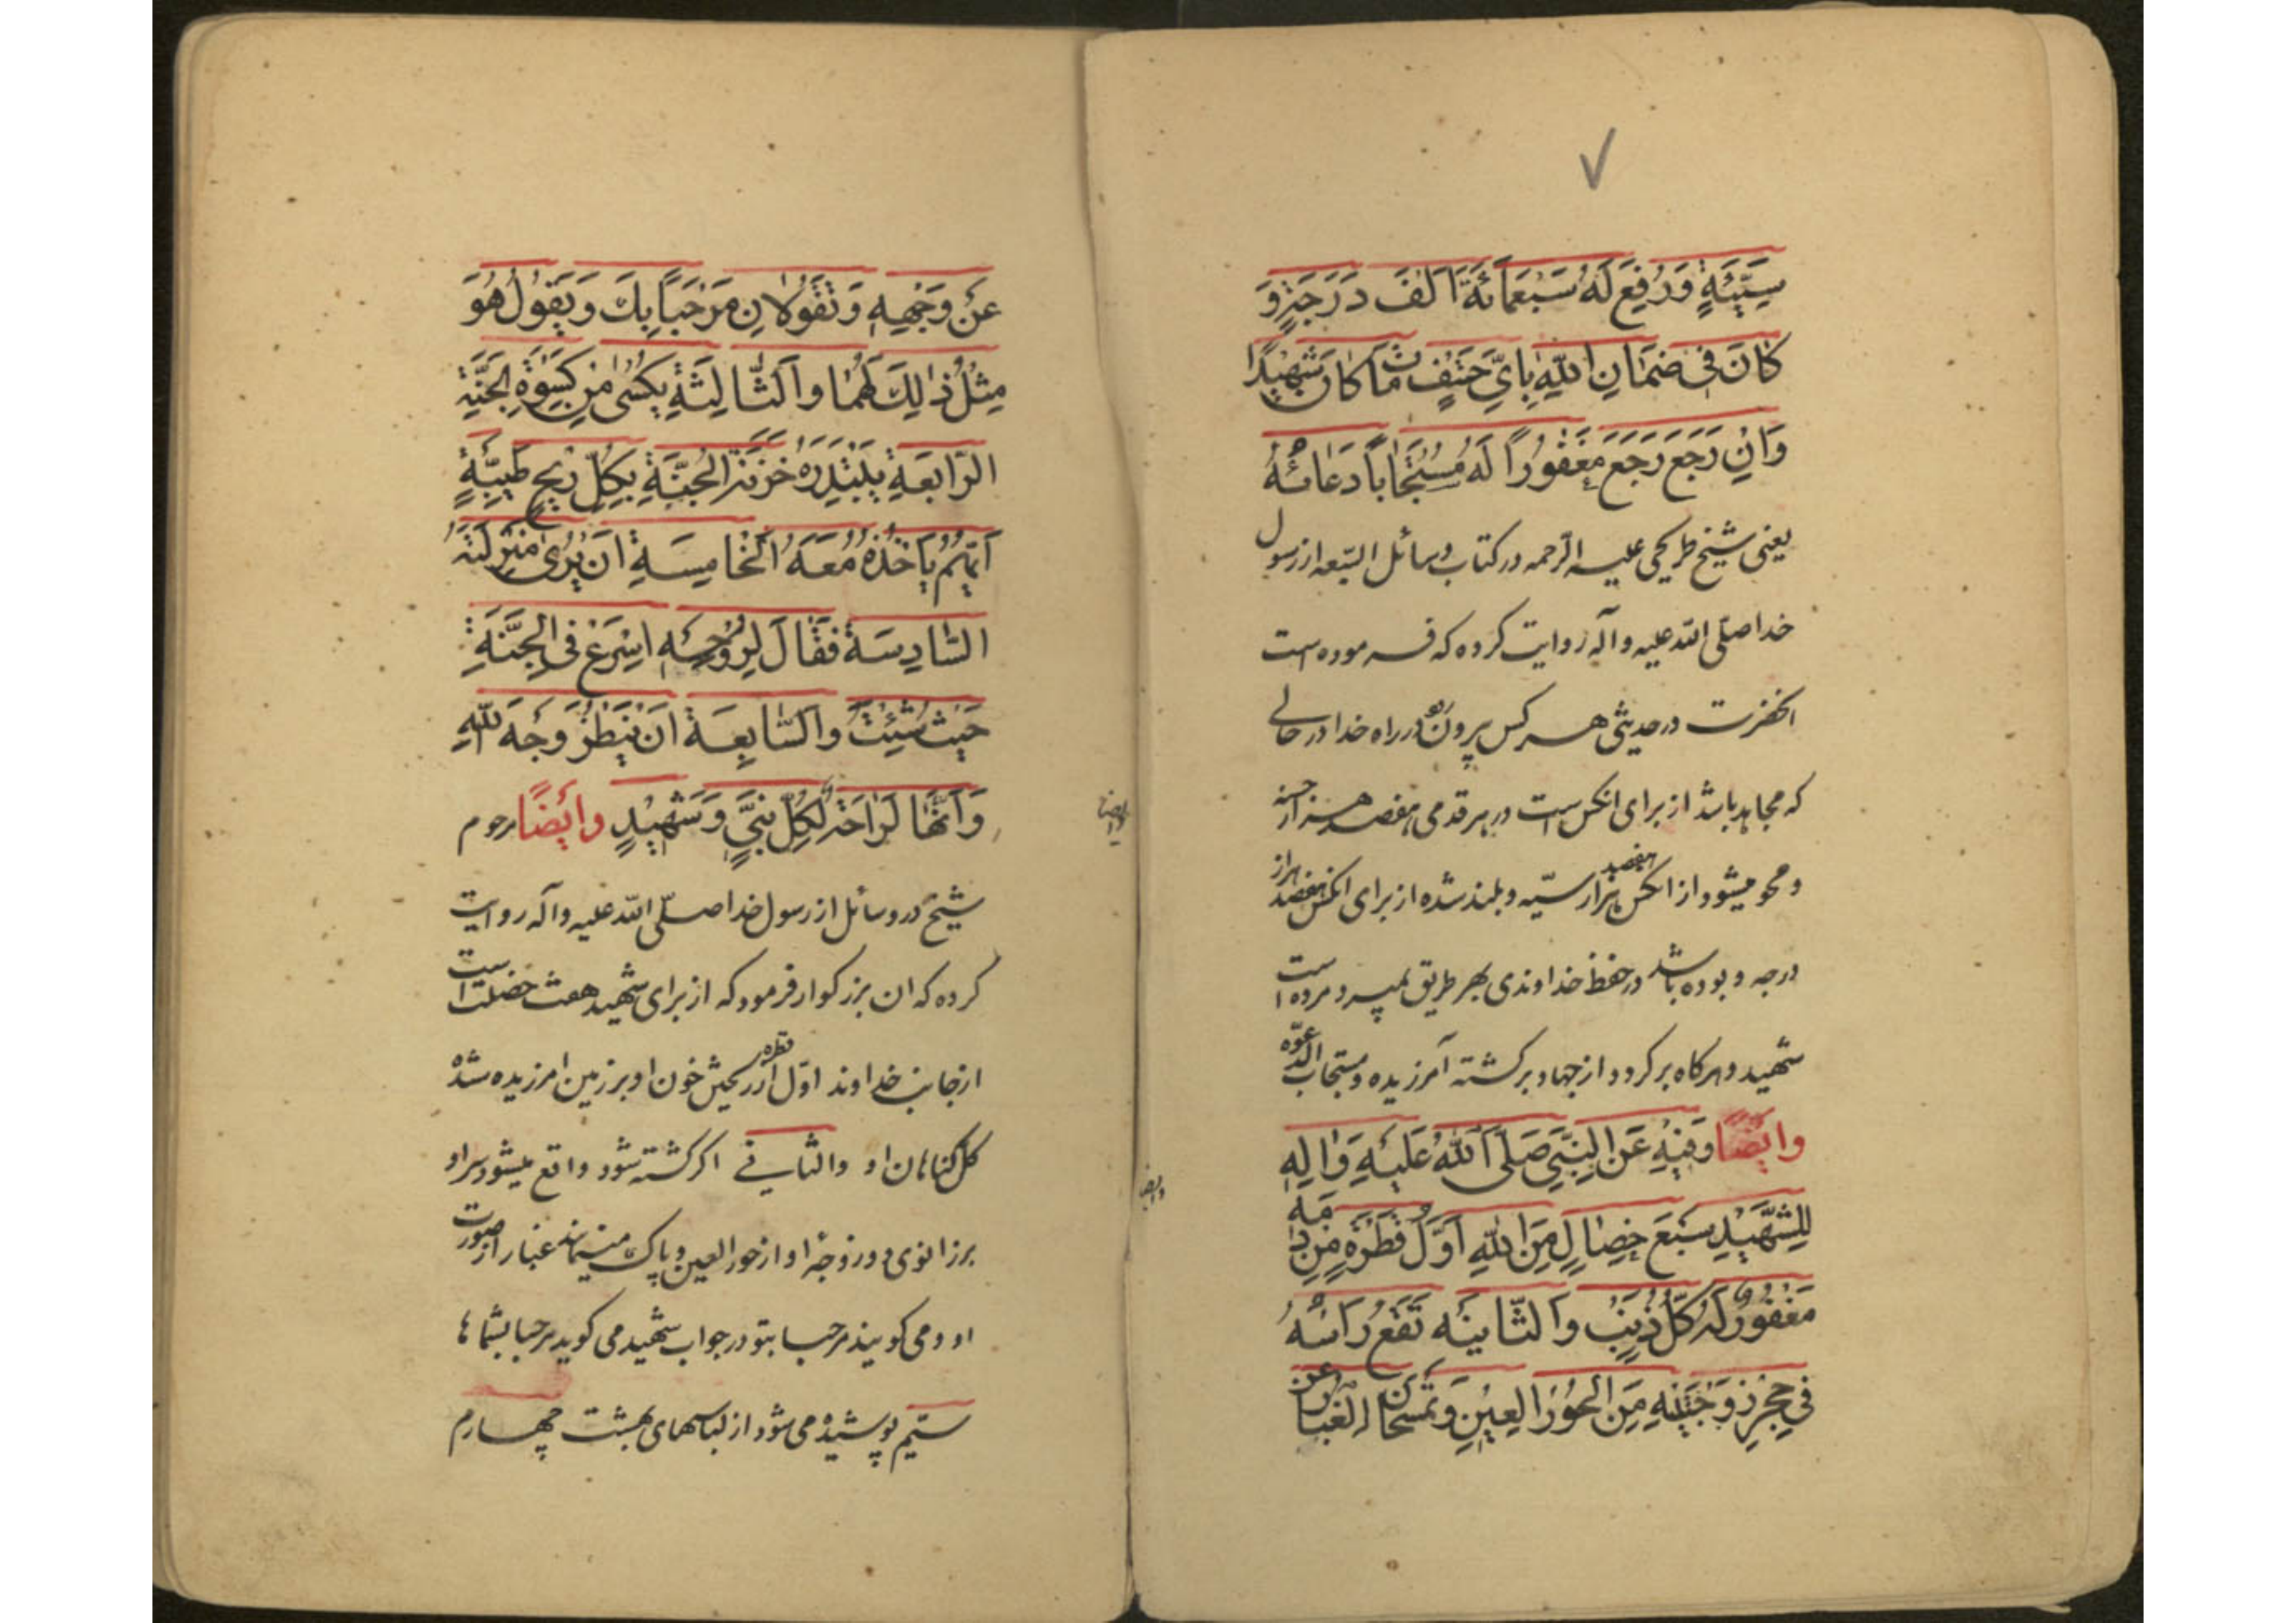 ٧
سَيِّئَةٍ وَرُفِعَ لَهُ سَبْعَمِائَةِ اَلْفَ دَرَجَةٍ وَ
كٰانَ فى ضَمٰانِ اللّٰهِ بِاَىِّ حَتْفٍ مٰاتَ كٰانَ شَهيٖدًا
وَاِنْ رَجَعَ رَجَعَ مَغْفُوراً لَهُ مُسْتَجٰاباً دَعٰائُهُ
يعنى شيخ طريحى عليه الرحمه در كتاب وسائل الشيعه از رسول
خدا صلّى اللّه عليه و آله روايت كرده كه فرموده است
انحضرت در حديثى هر كس بيرون رود در راه خدا در حالى
كه مجاهد باشد از براى انكس است در هر قدمى هفتصد هزار حسنه
و محو ميشود از انكس هفتصد هزار سيّئه و بلند شده از براى انكس هفتصد هزار
درجه و بوده باشد در حفظ خداوندى بهر طريق بميرد مرده است
شهيد و هر كاه بر كردد از جهاد بر كشته آمرزيده و مستجاب الدعوّه
وايضًا وَفيٖهِ عَنِ النَّبِيِّ صَلَّى اللّٰهُ عَلَيْهِ وَاٰلِهِ
لِلشَّهٖيدِ سَبْعَ خِصٰالٍ مِنَ اللّٰهِ اَوَّلُ قَطْرَةٍ مِنْ دَمِهِ
مَغْفُورٌ لَهُ كُلُّ ذَنْبٍ وَالثّٰانيَه تَقَعُ رَاْسُهُ
فى حِجْرِ زَوْجَتَيْهِ مِنَ الْحُورِ الْعيٖنِ وَتَمْسَحٰانِ الغُبٰارَ عَنْ
عَنْ وَجْهِهِ وَتَقُولٰانِ مَرْحَباً بِكَ وَيَقُولُ هُوَ
مِثْلُ ذٰلِكَ لَهُمٰا وَالثّٰالِثَةِ يُكْسٰى مِنْ كِسْوَةِ الجَنَّةِ
الرّٰابِعَةِ يَبْتَدِرَهُ خَزَنَةَ الْجَنَّةِ بِكُلِّ ريٖحٍ طَيِّبَةٍ
اَيُّهُمْ يَاْخُذُهُ مَعَهُ اَلْخٰامِسَةِ اَنْ يُرىٰ مَنْزِلَتَهُ
السّٰادِسَةُ فَقٰالَ لِرُوحِهِ اِسْرَعْ فى الجَنَّةِ
حَيْثُ شِئْتَ وَالسّٰابِعَةِ اَنْ يَنْظُرَ وَجْهَ اللّٰهِ
وَاَنَّهٰا لَرٰاحَةٌ لِكُلِّ نَبِيٍّ وَشَهيٖدٍ وايضًا مرحوم
شيخ در وسائل از رسول خدا صلّى اللّه عليه و آله روايت
كرده كه ان بزركوار فرمود كه از براى شهيد هفت خصلت است
از جانب خداوند اوّل قطره از ريختن خون او بر زمين امرزيده شده
كل كناهان او والثانى اكر كشته شود واقع ميشود سر او
بر زانوى دو زوجهٔ او از حور العين و پاك مينمايند غبار از صورت
او و مى كويند مرحبا بتو در جواب شهيد مى كويد مرحبا بشماها
سيّم پوشيده مى شود از لباسهاى بهشت چهارم